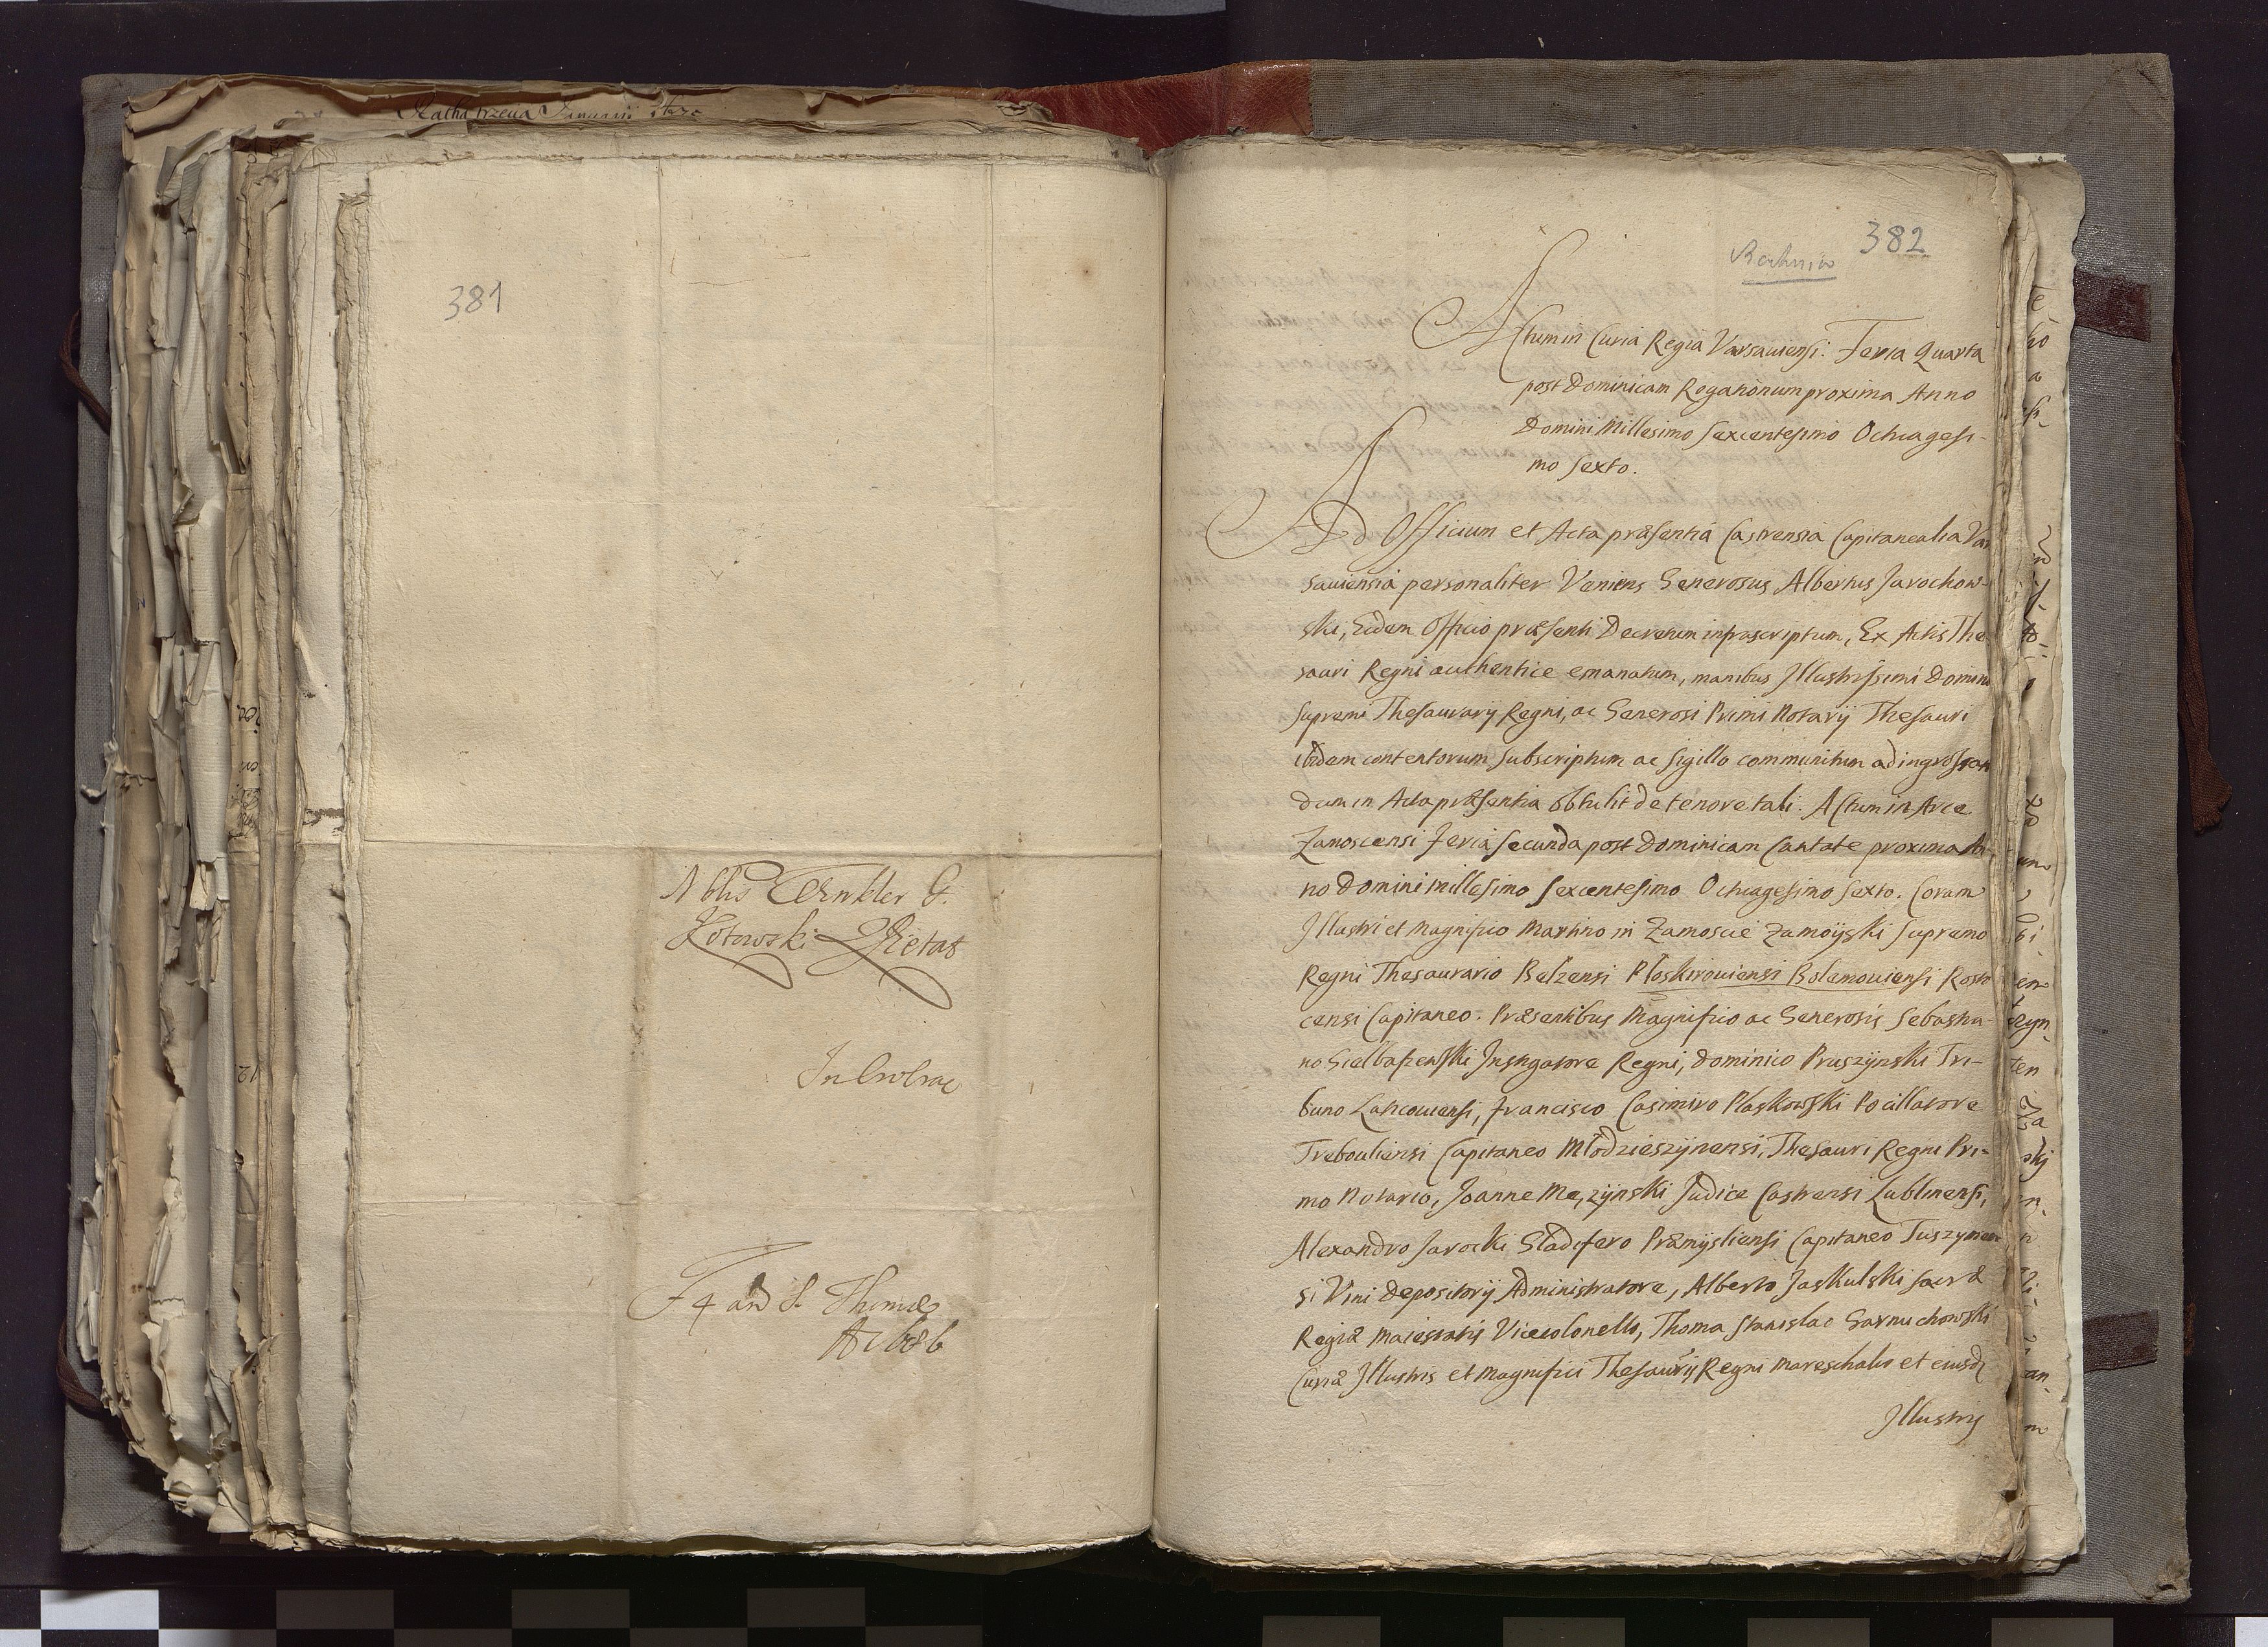 381
Nblis Winkler &
Kotowski Pietas
F 4 and S. Thomæ
A 1686
382
Actum in Curia Regia Varsaviensi. Feria Quarta
post Dominicam Rogationum proxima Anno
Domini Millesimo Sexcentesimo Octuagesi-
mo Sexto.
Ad Officium et Acta præsentia Castrensia Capitanealia Var
saviensia personaliter Veniens Generosus Albertus Jarochow-
ski, Eidem Officio præsenti Decretum infrascriptum, Ex Actis The
sauri Regni authentice emanatum, manibus Illustrissimi Domini
Supremi Thesaurarij Regni, ac Generosi Primi Notarij Thesauri
ibidem contentorum subscriptum ac sigillo communitum ad ingrossan
dum in Acta præsentia obtulit de tenore tali. Actum in Arce
Zamoscensi feria secunda post Dominicam Cantate proxima An
no Domini millesimo sexcentesimo Octuagesimo sexto. Coram
Illustri et Magnifico Martino in Zamoscie Zamoÿski Supremo
Regni Thesaurario Belzensi Ploskiroviensi Bolemoviensi Rosto
censi Capitaneo. Præsentibus Magnifico ac Generosis Sebastia-
no Gielbaszewski Instigatore Regni, Dominico Pruszÿnski Tri-
buno Laticoviensi, Francisco Casimiro Plaskowski Pocillatore
Trebovliensi Capitaneo Młodzieszÿnensi, Thesauri Regni Pri-
mo Notario, Joanne Męzÿnski Judice Castrensi Lublinensi,
Alexandro Jarocki Gladifero Præmÿsliensi Capitaneo Tuszynen
si Vini Depositorij Administratore, Alberto Jaskulski Sacræ
Regiæ Maiestatis Vicecolonello, Thoma Stanislao Garnuchowski
Curiæ Illustris et Magnifici Thesaurij Regni Mareschalco et eiusd
Illustris